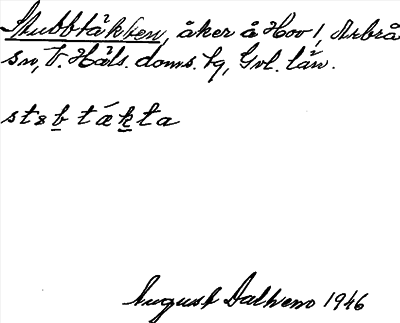 Stubbtäkten, åker å Hov 1, Arbrå
sn, V. Häls. doms. hg, Gvl. län.
stsb tækta
August Dalhem 1946